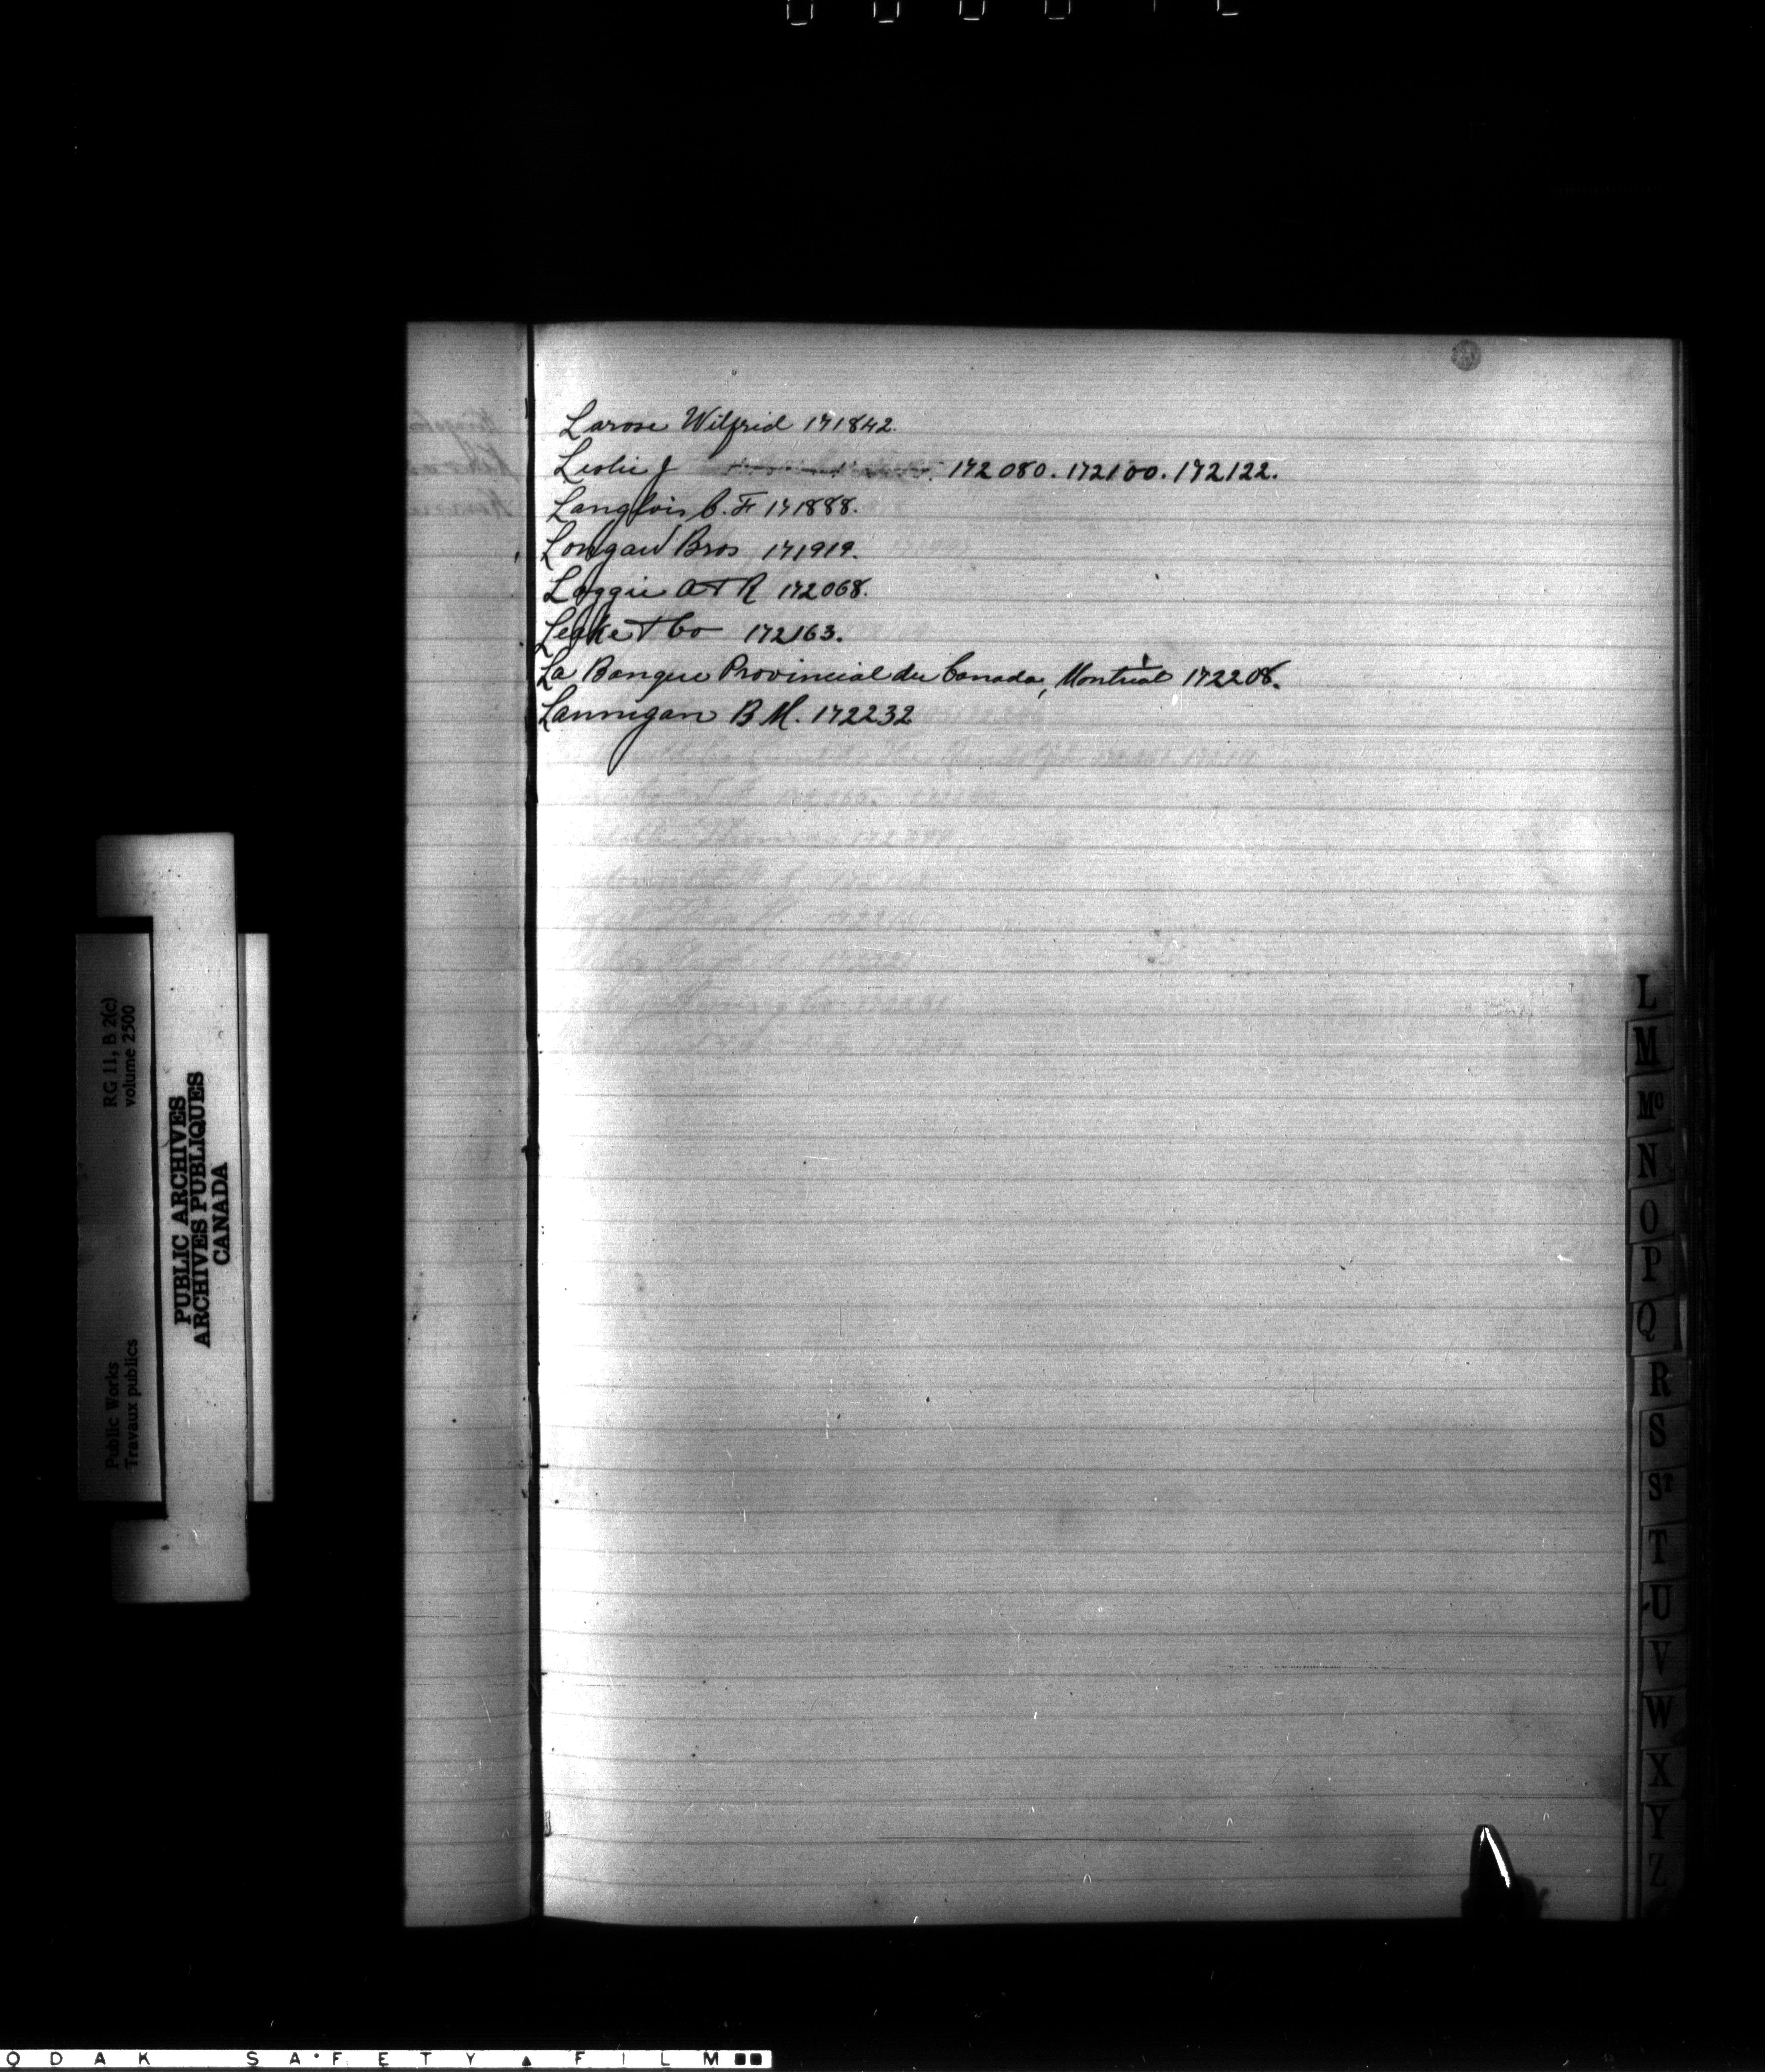 Larose Wilfrid 171842.
Leslie J 172080. 172100. 172122.
Langlois C. F 171888.
Longard Bros 171919.
Loggie A & R 172068.
Leake & Co 172163.
La Banque Provincial du Canada, Montreal 172208.
Lannigan B M. 172232
L
M
Mc
N
O
P
Q
R
S
ST
T
U
V
W
X
Y
Z
RG 11, B 2(c)
volume 2500
Public Works
Travaux publics
PUBLIC ARCHIVES
ARCHIVES PUBLIQUES
CANADA
ODAK SAFETY FILM